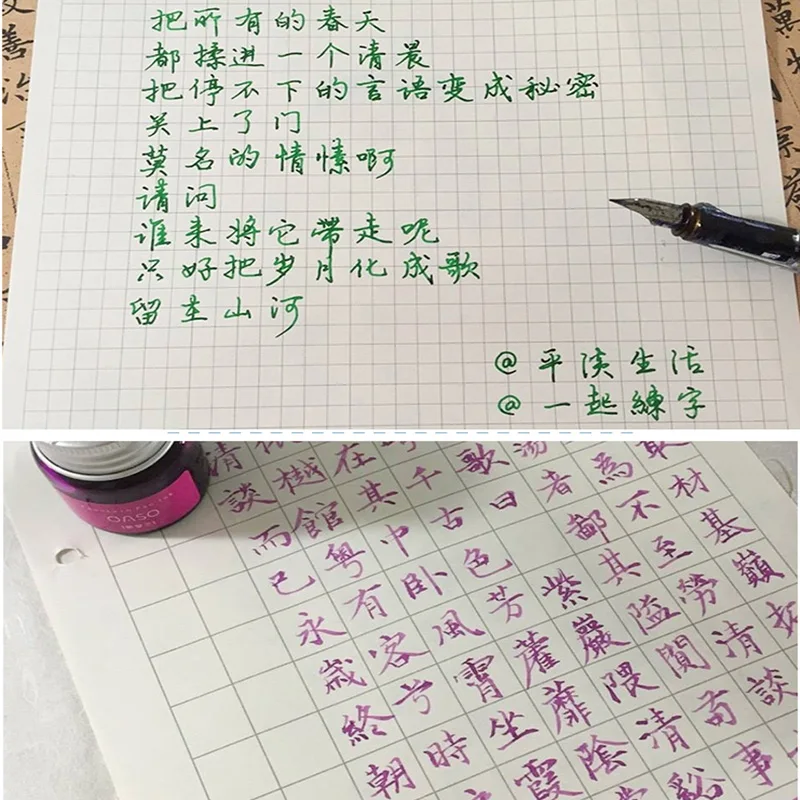 把所有的春天
都揉进一个清晨
把停不下的言語变成秘密
关上了门
莫名的情愫啊
请问
谁来将它帶走呢
只好把岁月化成歌
留在山河
@平淡生活
@一起練字
OASO
取材基巔拓
為不至勞清談
者鄙其隘閒苟事
歌曰紫巖隈清谿
千古色芳藿蘼陰
在其中臥風霄坐霞
樾館粵有客兮時
清談而已永歲終朝